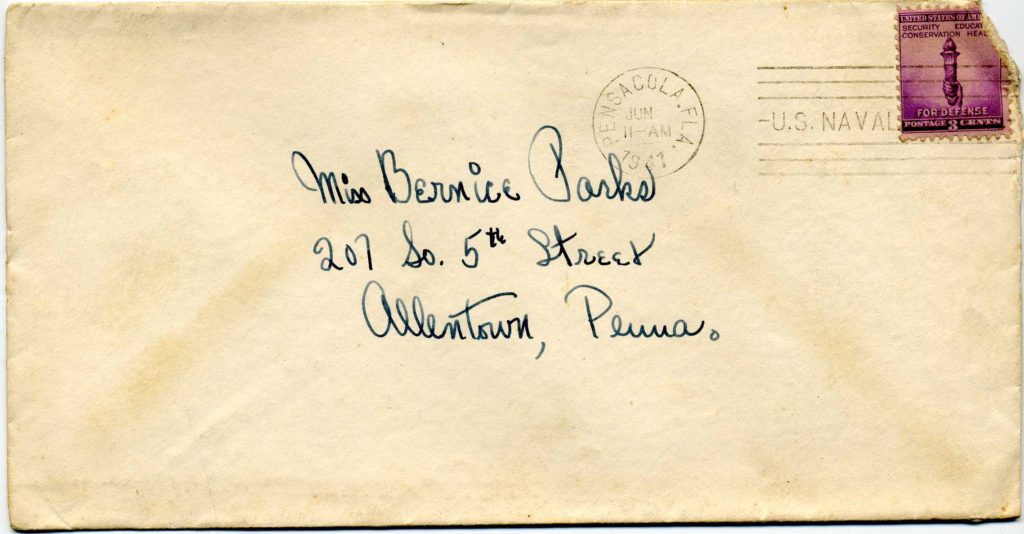 UNITED STATES OF AME
SECURITY EDUCATI
CONSERVATION HEAL
FOR DEFENSE
POSTAGE 3 CENTS
PENSACOLA, FLA.
JUN
11-AM
1941
U.S. NAVAL
Miss Bernice Parks
207 So. 5th Street
Allentown, Penna.